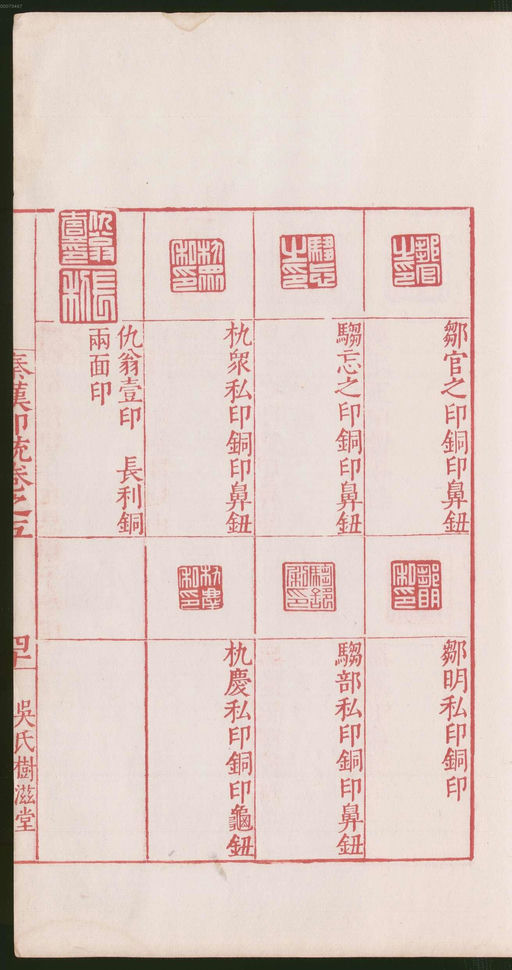 鄒官之印銅印鼻鈕
騶忘之印銅印鼻鈕
杋眾私印銅印鼻鈕
仇翁壹印　長利銅
兩面印
鄒明私印銅印
騶部私印銅印鼻鈕
杋慶私印銅印龜鈕
秦漢印統卷之五
吳氏樹滋堂
00073447